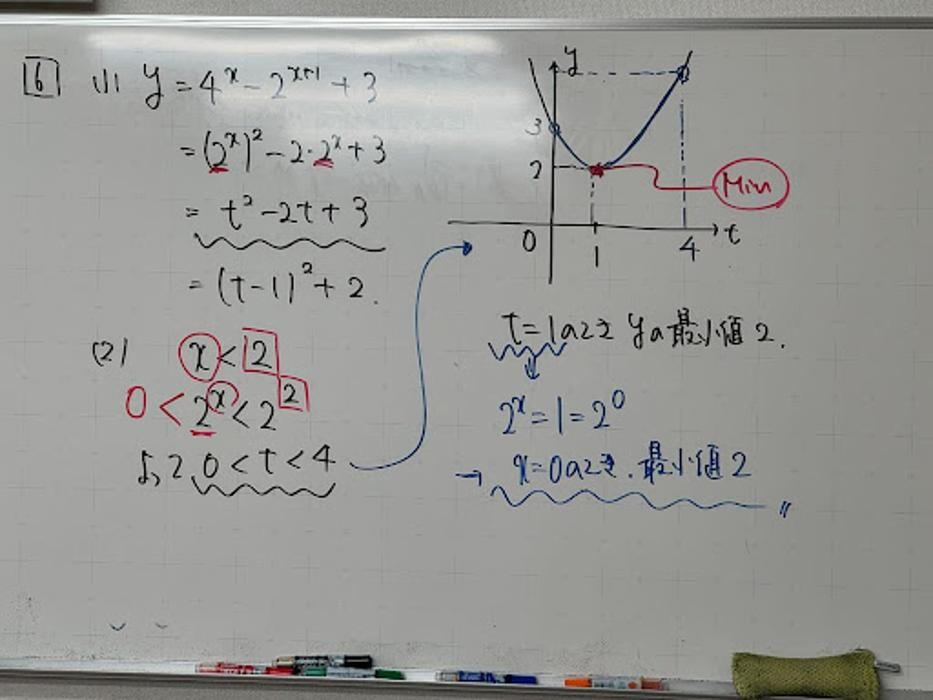 6 (1) y = 4^x - 2^{x+1} + 3
= (2^x)^2 - 2・2^x + 3
= t^2 - 2t + 3
= (t-1)^2 + 2.
(2) x < 2
0 < 2^x < 2^2
よって 0 < t < 4
y
3
2
0
1
4
t
Min
t=1のとき yの最小値 2.
2^x = 1 = 2^0
→ x=0のとき. 最小値 2 〃